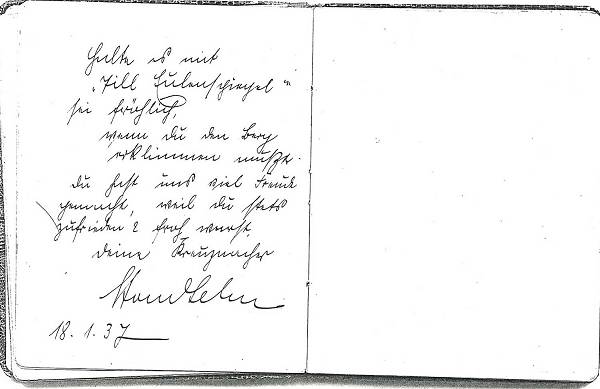 Halte es mit
"Till Eulenspiegel"
sei fröhlich,
wenn du den Berg
erklimmen mußt.
du hast uns viel Freude
gemacht, weil du stets
zufrieden & froh warst.
Deine Kreuznacher
18.1.37